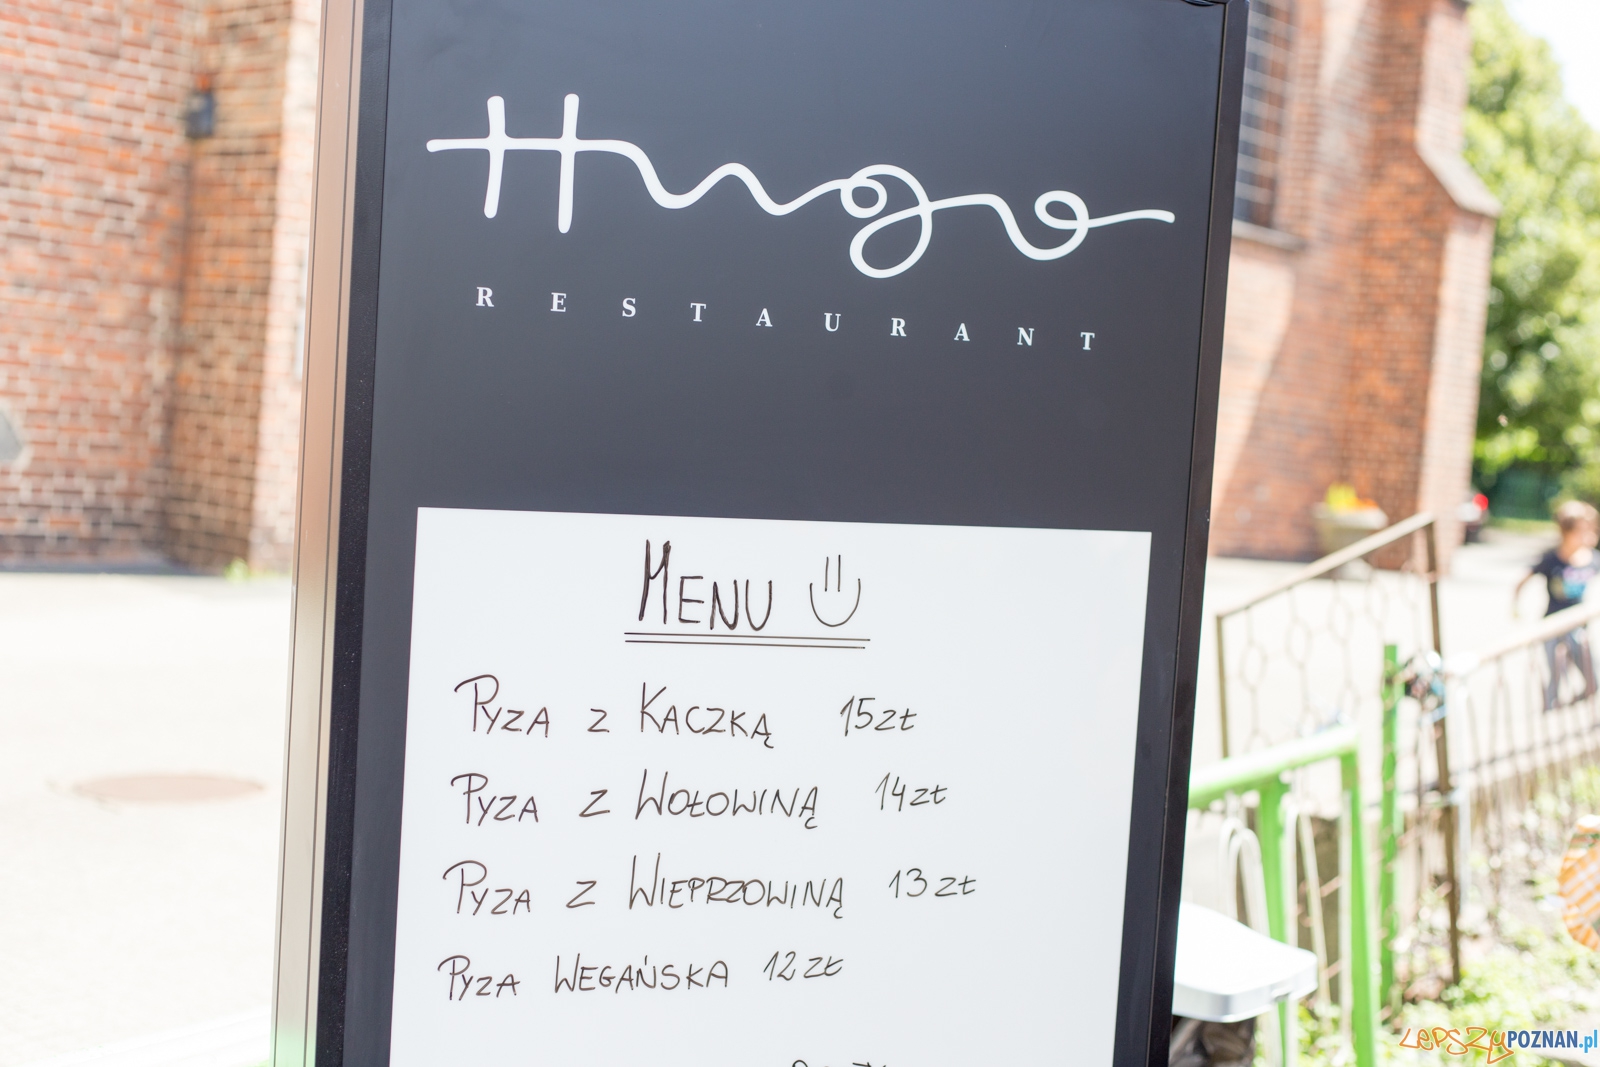 Hugo
RESTAURANT
MENU
PYZA Z KACZKĄ 15zł
PYZA Z WOŁOWINĄ 14zł
PYZA Z WIEPRZOWINĄ 13zł
PYZA WEGAŃSKA 12zł
LEPSZYPOZNAN.pl